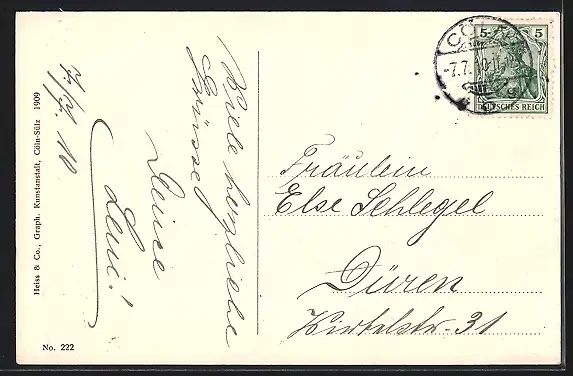 Viele herzliche
Grüsse
Deine
Leni!
7/7. 10
Heiss & Co., Graph. Kunstanstalt, Cöln-Sülz 1909
No. 222
CÖLN
-7.7.10.11-
5 5
DEUTSCHES REICH
Fräulein
Else Schlegel
Düren
Wirtelstr. 31